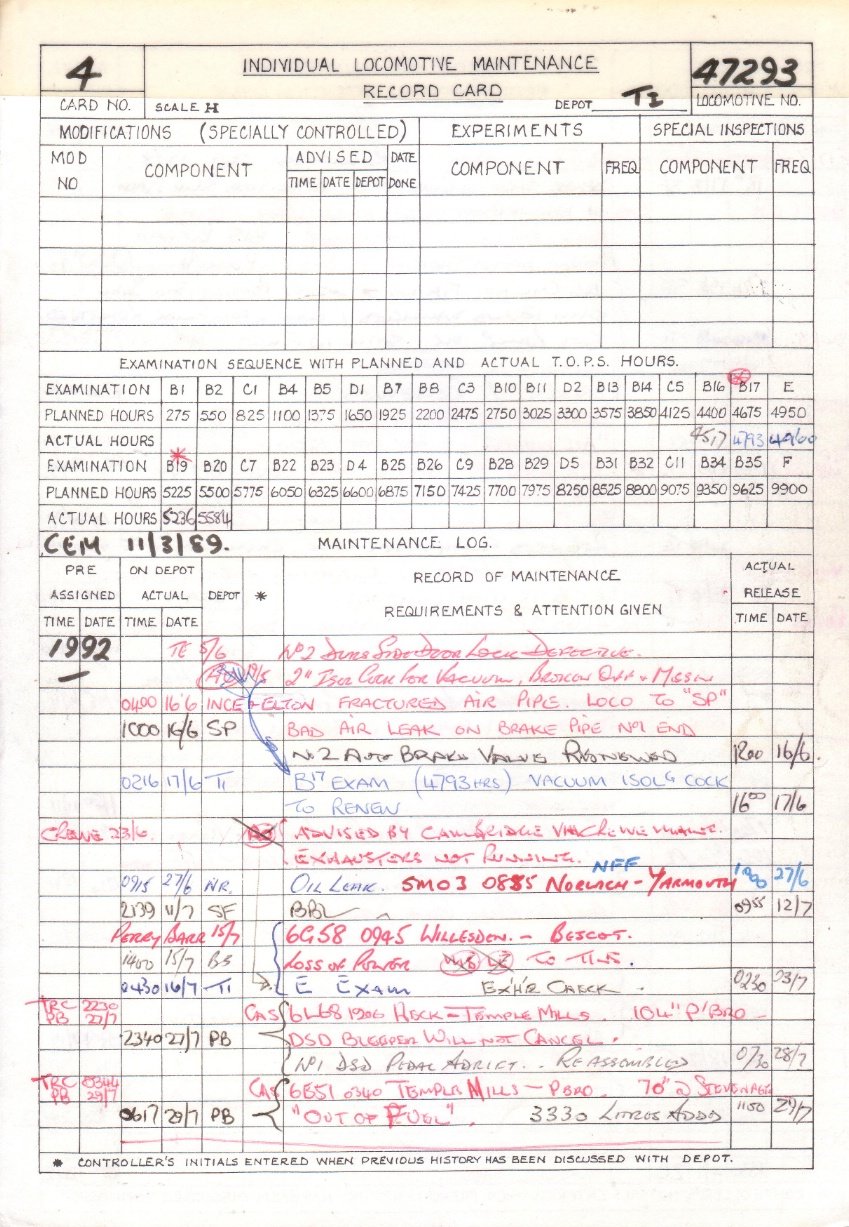 4
INDIVIDUAL LOCOMOTIVE MAINTENANCE
47293
CARD NO. SCALE H
RECORD CARD
DEPOT TI
LOCOMOTIVE NO.
MODIFICATIONS (SPECIALLY CONTROLLED) EXPERIMENTS SPECIAL INSPECTIONS
MOD NO COMPONENT ADVISED DATE DONE COMPONENT FREQ COMPONENT FREQ
TIME DATE DEPOT
EXAMINATION SEQUENCE WITH PLANNED AND ACTUAL T.O.P.S. HOURS.
EXAMINATION B1 B2 C1 B4 B5 D1 B7 B8 C3 B10 B11 D2 B13 B14 C5 B16 B17 E
PLANNED HOURS 275 550 825 1100 1375 1650 1925 2200 2475 2750 3025 3300 3575 3850 4125 4400 4675 4950
ACTUAL HOURS 4517 4793 4960
*
EXAMINATION B19 B20 C7 B22 B23 D4 B25 B26 C9 B28 B29 D5 B31 B32 C11 B34 B35 F
PLANNED HOURS 5225 5500 5775 6050 6325 6600 6875 7150 7425 7700 7975 8250 8525 8800 9075 9350 9625 9900
ACTUAL HOURS 5236 5584
CEM 11/3/89. MAINTENANCE LOG.
PRE ASSIGNED ON DEPOT ACTUAL DEPOT * RECORD OF MAINTENANCE ACTUAL RELEASE
REQUIREMENTS & ATTENTION GIVEN
TIME DATE TIME DATE TIME DATE
1992 TE 5/6 No 2 Side Door Lock Defective.
19/5 2" Isol Cock for Vacuum, Broken Off & Missing
0400 16/6 INCE & ELTON FRACTURED AIR PIPE. LOCO TO "SP"
1000 16/6 SP BAD AIR LEAK ON BRAKE PIPE No1 END
No 2 Auto Brake Valve Renewed 1200 16/6.
0216 17/6 TI B17 EXAM (4793 HRS) VACUUM ISOLG COCK
TO RENEW 1600 17/6
CREWE 23/6. ADVISED BY CAMBRIDGE VIA CREWE
EXHAUSTERS NOT RUNNING.
NFF
0915 27/6 NR. OIL LEAK. 5M03 0855 NORWICH - YARMOUTH 27/6
2139 11/7 SF BBL 0955 12/7
PERRY BARR 15/7 6G58 0945 WILLESDEN. - BESCOT.
1400 15/7 BS LOSS OF POWER TO TINS.
0430 16/7 TI E EXAM EXH'R CHECK. 0230 23/7
TRC PB 2230 27/7 CAS 6L68 1906 HECK - TEMPLE MILLS. 104" P'BRO -
2340 27/7 PB DSD BLEEPER WILL NOT CANCEL.
No1 DSD PEDAL ADRIFT. REASSEMBLED 0730 28/7
TRC PB 0344 29/7 CAS 6E51 0340 TEMPLE MILLS - PBRO. 70" @ STEVENAGE
0617 29/7 PB "OUT OF FUEL". 3330 LITRES ADDED 1150 29/7
* CONTROLLER'S INITIALS ENTERED WHEN PREVIOUS HISTORY HAS BEEN DISCUSSED WITH DEPOT.